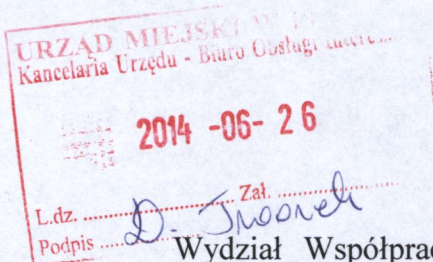 URZĄD MIEJSKI W
Kancelaria Urzędu - Biuro Obsługi
2014 -06- 26
L.dz. .................... Zał. ....................
Podpis ..... D.
Wydział Współprac